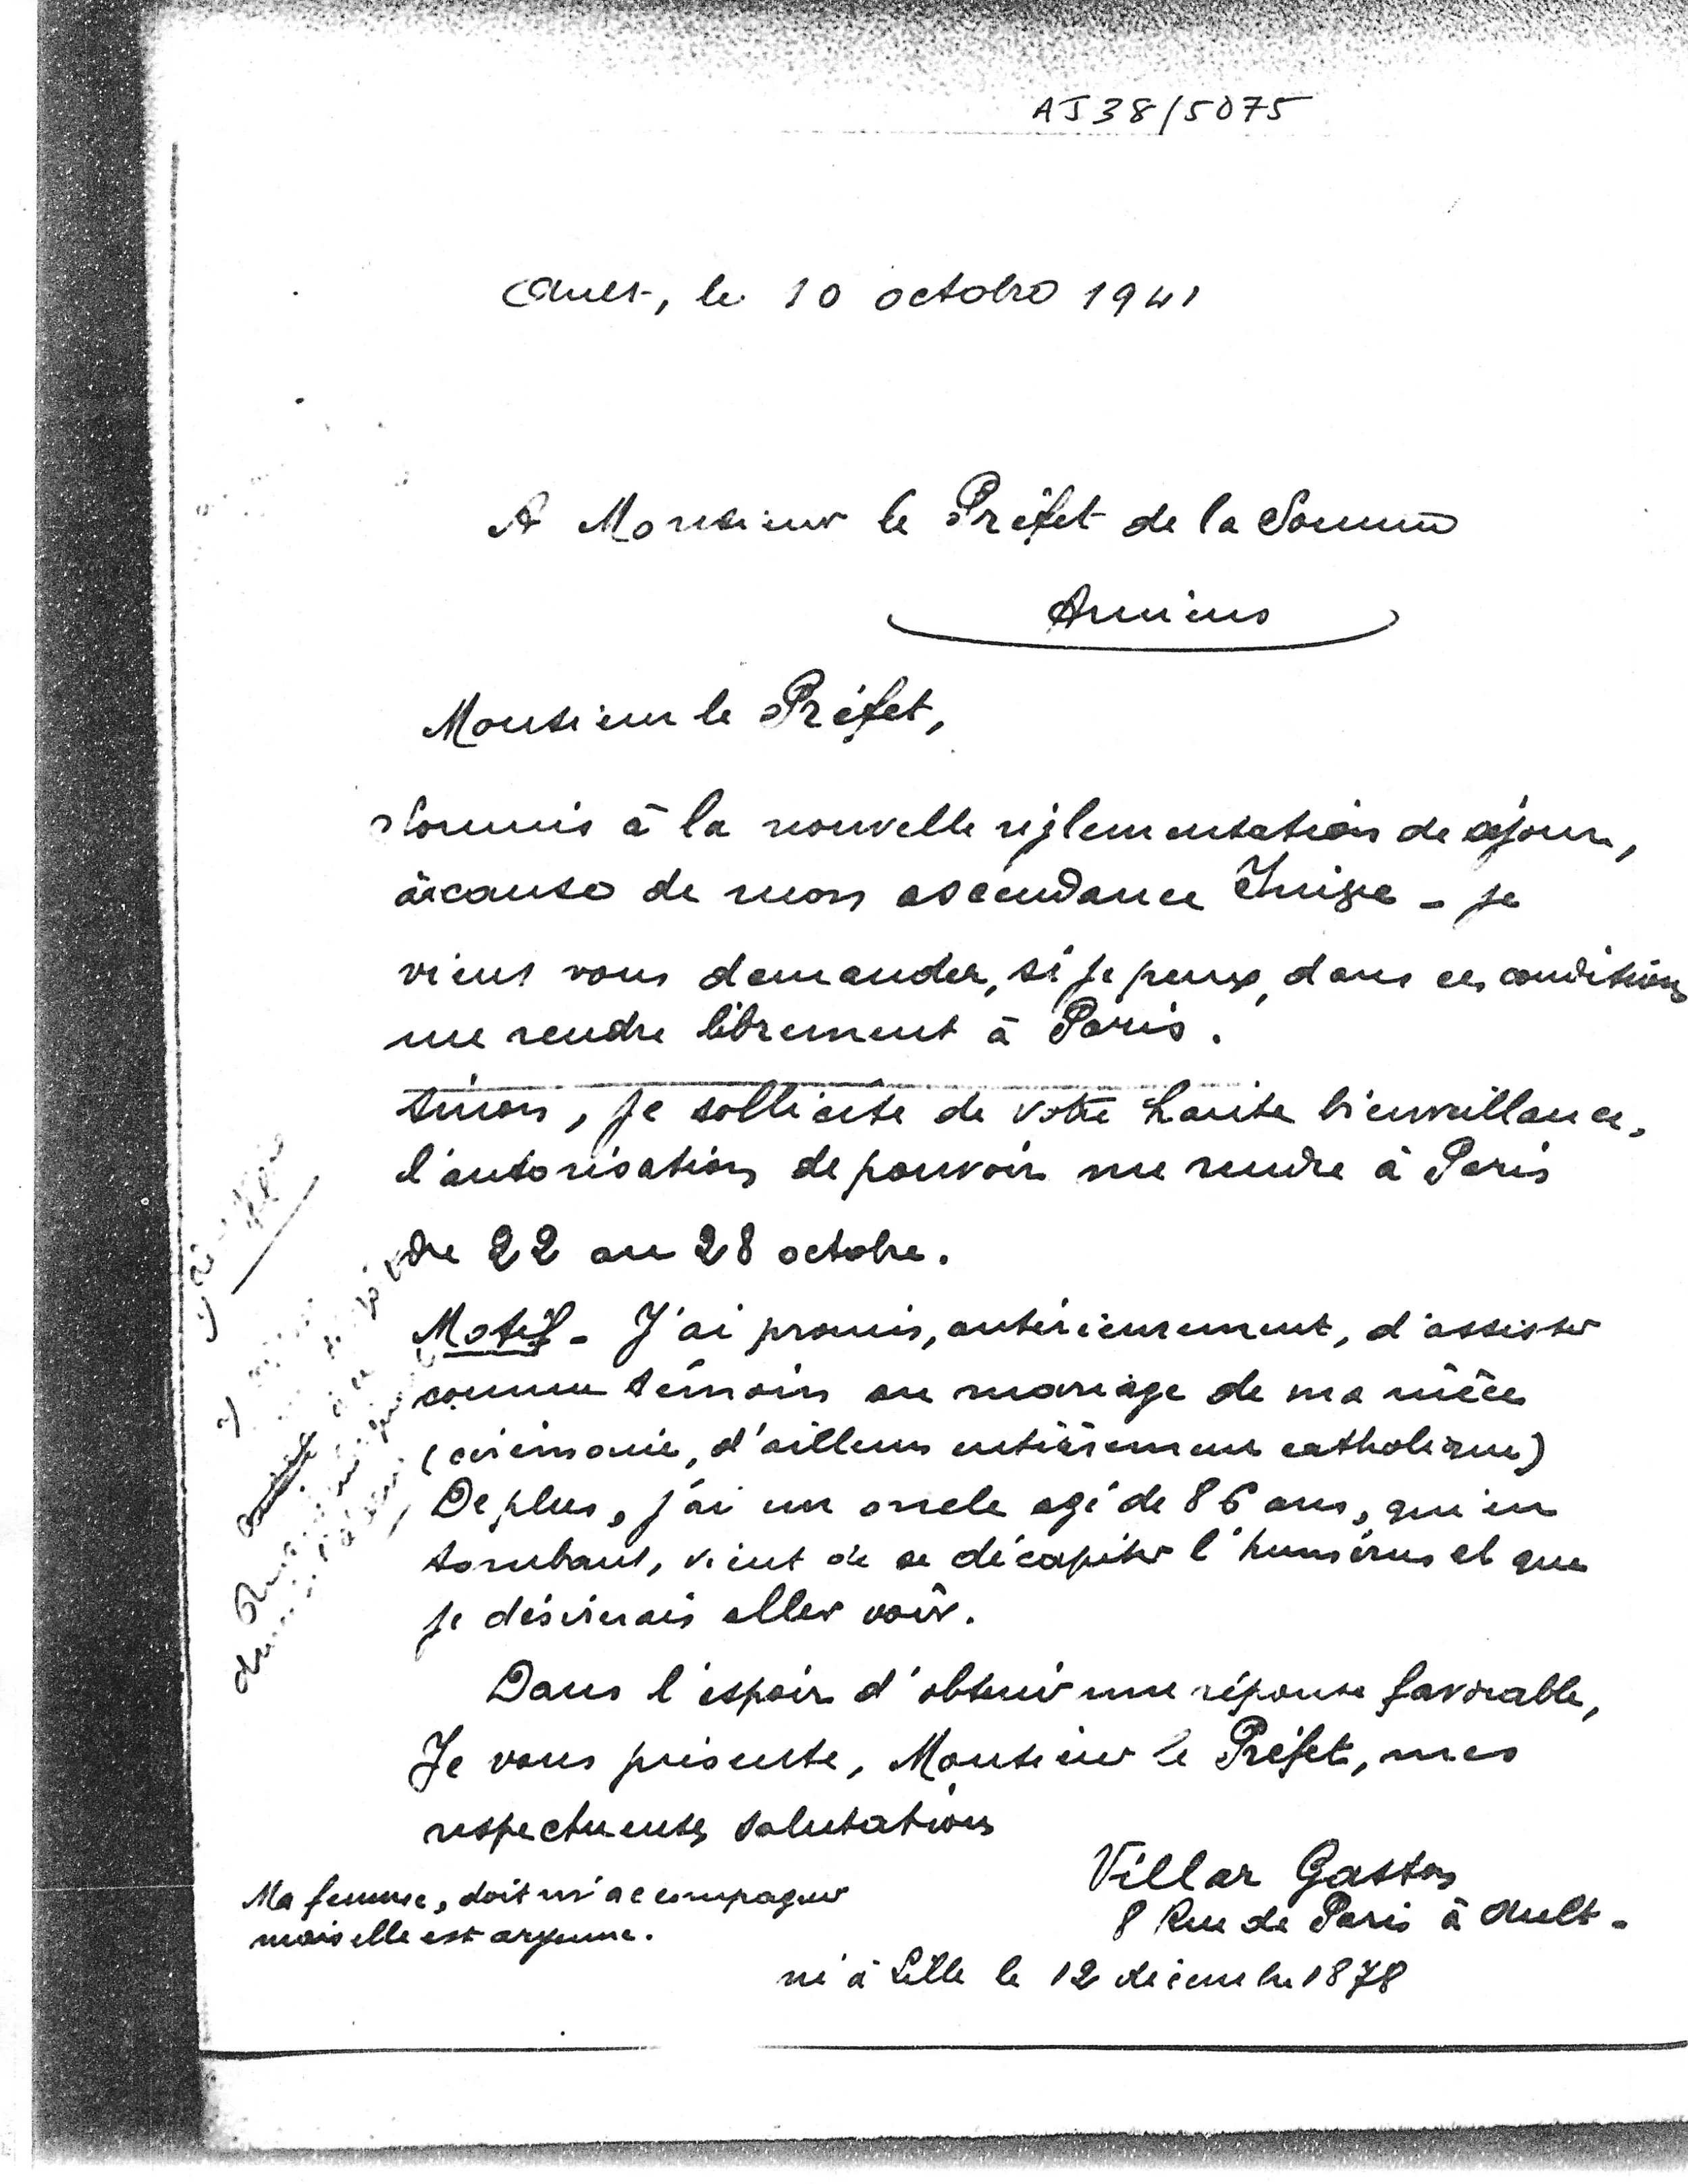 AJ38/5075
Ault, le 10 octobre 1941
A Monsieur le Préfet de la Somme
Amiens
Monsieur le Préfet,
Soumis à la nouvelle réglementation de séjour,
à cause de mon ascendance Juive - je
viens vous demander, si je peux, dans ces conditions
me rendre librement à Paris.
Sinon, je sollicite de votre haute bienveillance,
l'autorisation de pouvoir me rendre à Paris
du 22 au 28 octobre.
Motif - J'ai promis, antérieurement, d'assister
comme témoin au mariage de ma nièce
(cérémonie, d'ailleurs entièrement catholique)
De plus, j'ai un oncle agé de 86 ans, qui en
tombant, vient de se décapiter l'humérus et que
je désirerais aller voir.
Dans l'espoir d'obtenir une réponse favorable,
Je vous présente, Monsieur le Préfet, mes
respectueuses salutations
Villar Gaston
8 Rue de Paris à Ault -
né à Lille le 12 décembre 1878
Ma femme, doit m'accompagner
mais elle est aryenne.